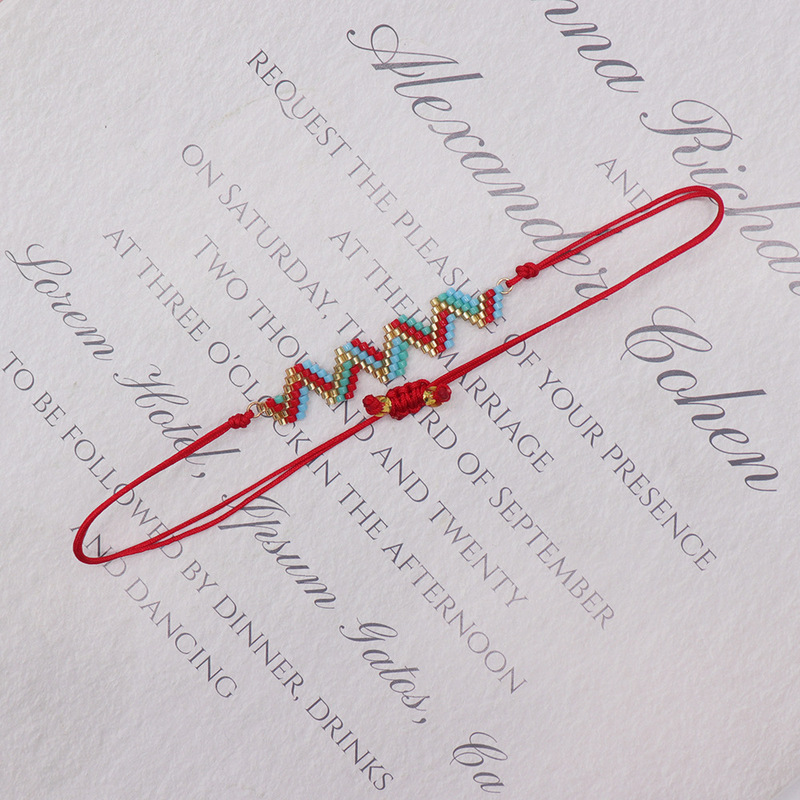 AND
Alexander Cohen
REQUEST THE OF YOUR PRESENCE
AT THEIR MARRIAGE
ON SATURDAY, OF SEPTEMBER
TWO AND TWENTY
AT THREE O'CLOCK IN THE AFTERNOON
Lorem Hotel, Ipsum Gatos, Ca
TO BE FOLLOWED BY DINNER, DRINKS
AND DANCING